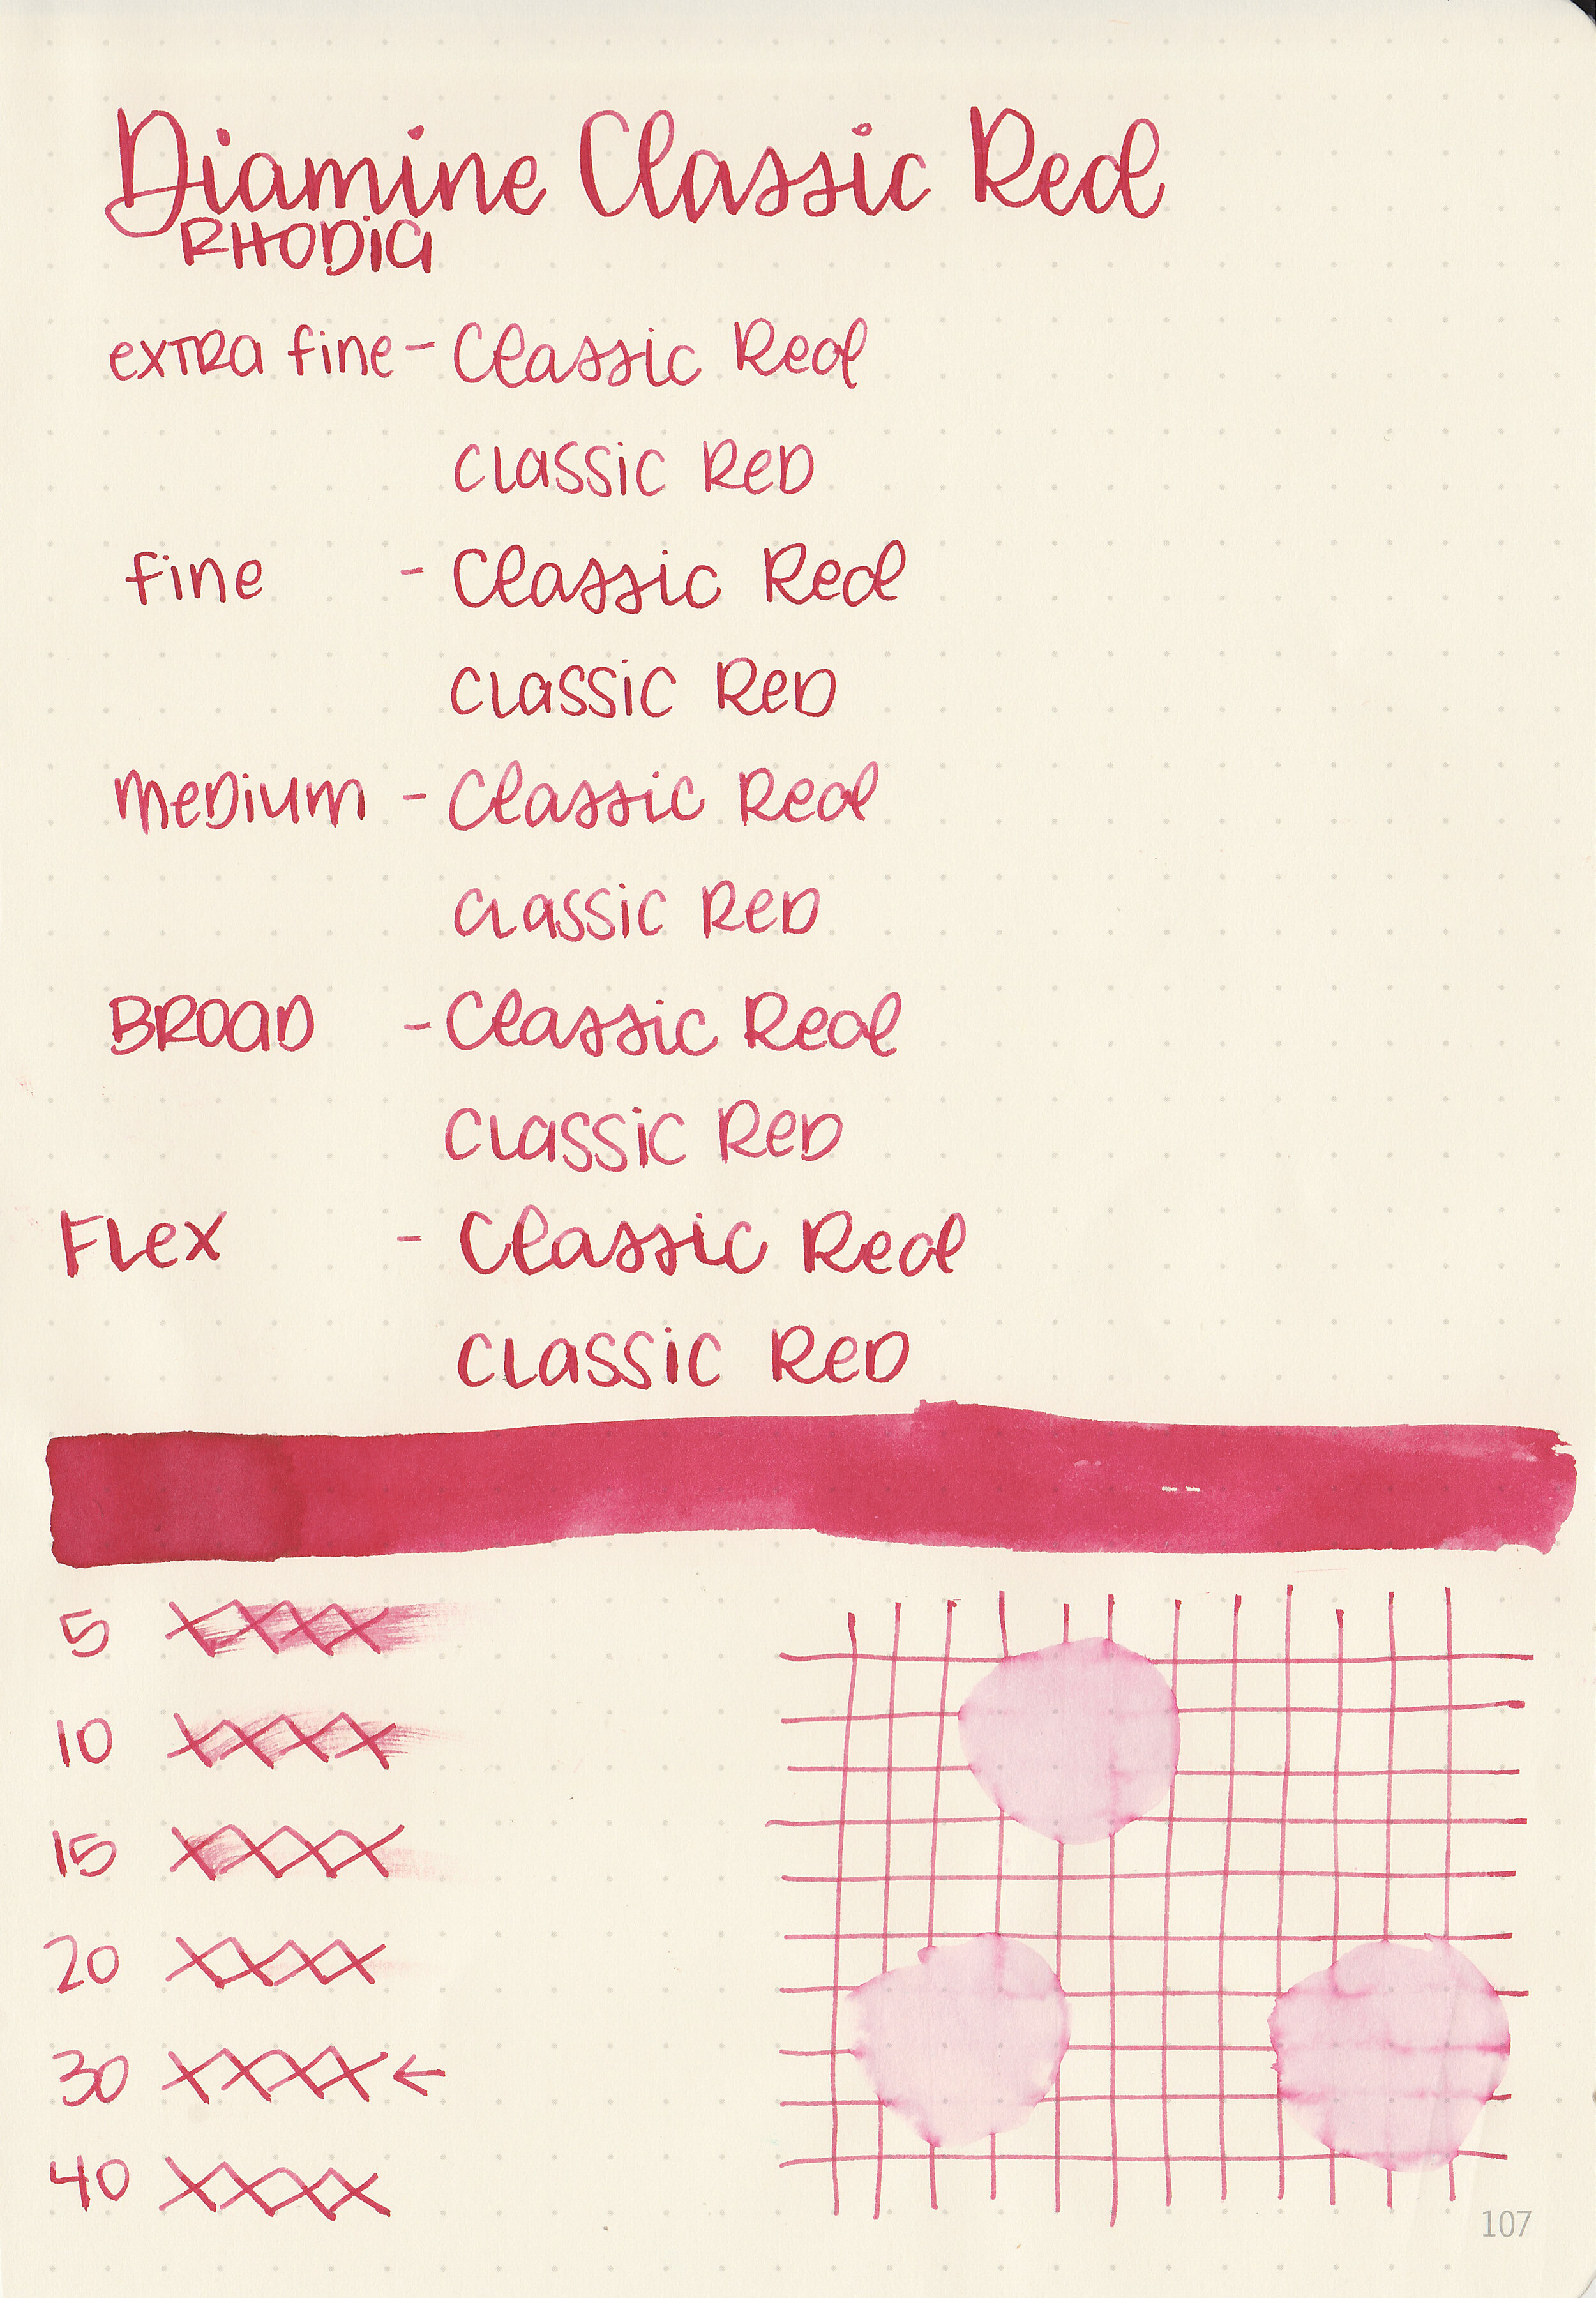 Diamine Classic Red
RHODIA
extra fine - Classic Red
Classic Red
fine - Classic Red
Classic Red
Medium - Classic Red
Classic Red
BROAD - Classic Red
Classic Red
Flex - Classic Red
Classic Red
5 XXXX
10 XXXX
15 XXXX
20 XXXX
30 XXXX ←
40 XXXX
107